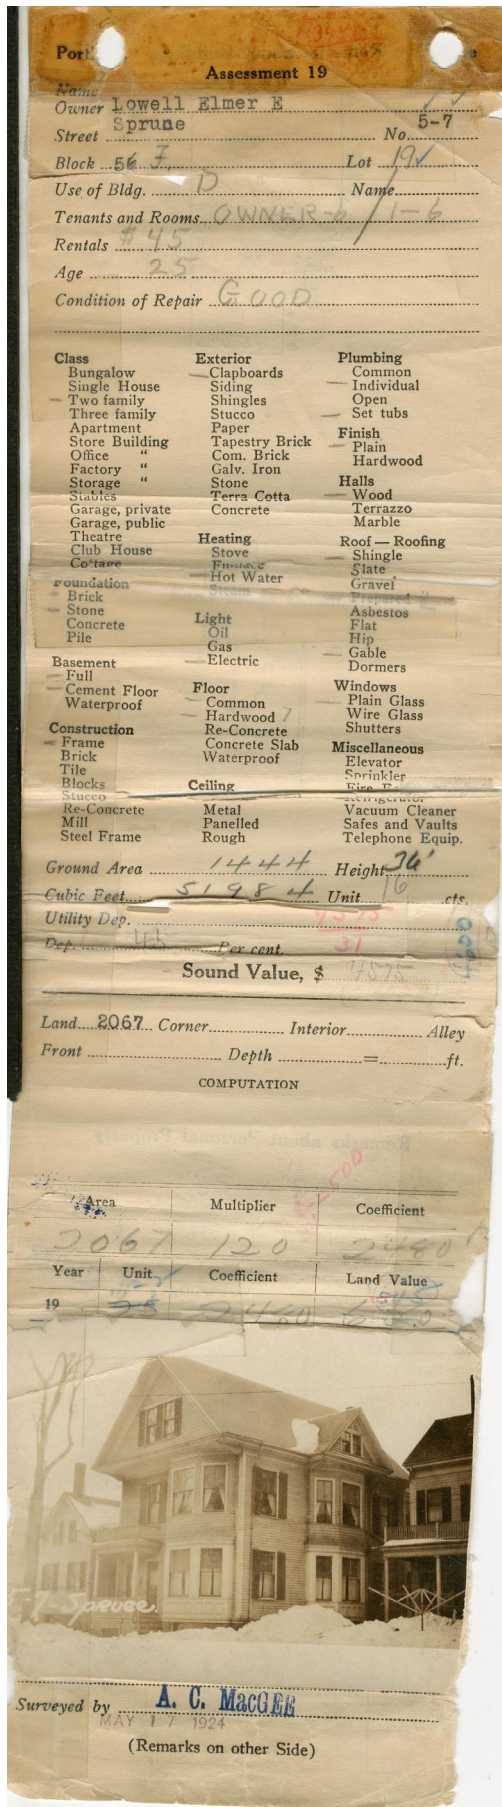 Assessment 19
Name
Owner Lowell Elmer E
Street Sprune No. 5-7
Block 56 F Lot 19
Use of Bldg. D Name
Tenants and Rooms OWNER-6 / 1-6
Rentals $45
Age 25
Condition of Repair GOOD
Class
Bungalow
Single House
Two family
Three family
Apartment
Store Building
Office "
Factory "
Storage "
Stables
Garage, private
Garage, public
Theatre
Club House
Cottage
Foundation
Brick
Stone
Concrete
Pile
Basement
Full
Cement Floor
Waterproof
Construction
Frame
Brick
Tile
Blocks
Stucco
Re-Concrete
Mill
Steel Frame
Exterior
Clapboards
Siding
Shingles
Stucco
Paper
Tapestry Brick
Com. Brick
Galv. Iron
Stone
Terra Cotta
Concrete
Heating
Stove
Furnace
Hot Water
Steam
Light
Oil
Gas
Electric
Floor
Common
Hardwood 7
Re-Concrete
Concrete Slab
Waterproof
Ceiling
Metal
Panelled
Rough
Plumbing
Common
Individual
Open
Set tubs
Finish
Plain
Hardwood
Halls
Wood
Terrazzo
Marble
Roof — Roofing
Shingle
Slate
Gravel
Prepared "
Asbestos
Flat
Hip
Gable
Dormers
Windows
Plain Glass
Wire Glass
Shutters
Miscellaneous
Elevator
Sprinkler
Refrigerator
Vacuum Cleaner
Safes and Vaults
Telephone Equip.
Ground Area 1444 Height 36'
Cubic Feet 51984 Unit 16 cts.
Utility Dep. 4575
31
Dep. 45 Per cent.
Sound Value, $ 4575
Land 2067 Corner Interior Alley
Front Depth = ft.
COMPUTATION
Area Multiplier Coefficient
2067 120 2480
Year Unit Coefficient Land Value
19 25 2480
5-7-Spruce.
Surveyed by A. C. MacGEE
MAY 17 1924
(Remarks on other Side)